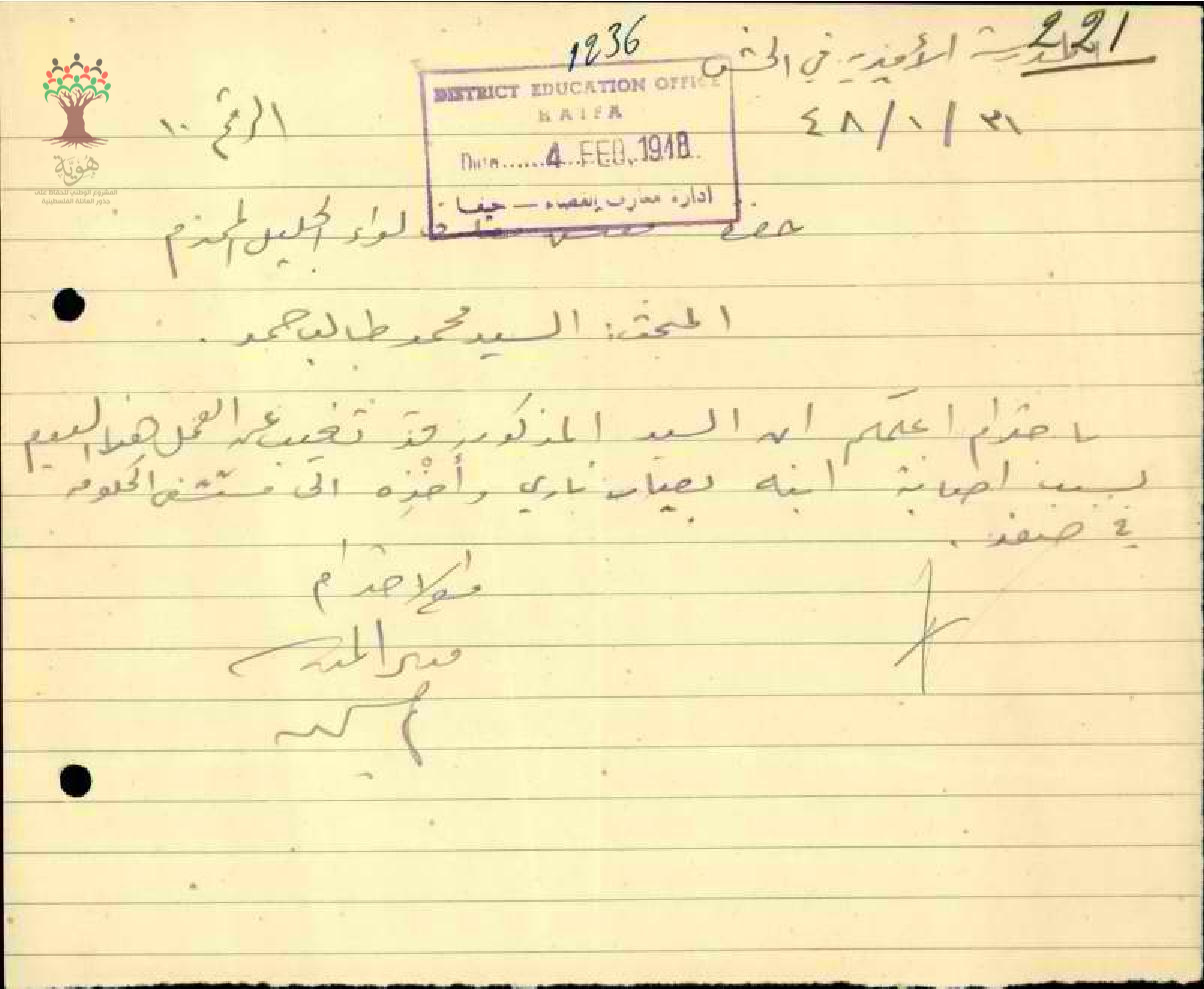 221
1236
المدرسة الأميرية في الجش
٣١/١/٤٨
الرقم ١٠
DISTRICT EDUCATION OFFICE
HAIFA
Date...... 4 FEB. 1948
ادارة معارف القضاء — حيفا
هوية
المشروع الوطني للحفاظ على
جذور العائلة الفلسطينية
حضرة مفتش معارف لواء الجليل المحترم
المبحث: السيد محمد طالب حمد.
باحترام اعلمكم ان السيد المذكور قد تغيب عن العمل هذا اليوم
بسبب اصابة ابنه بعيار ناري وأخْذِه الى مستشفى الحكومة
في صفد.
مع الاحترام
مدير المدرسة